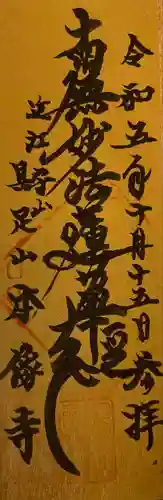 令和五年十月十五日参拝
南無妙法蓮華経
近江
具足山 本像寺